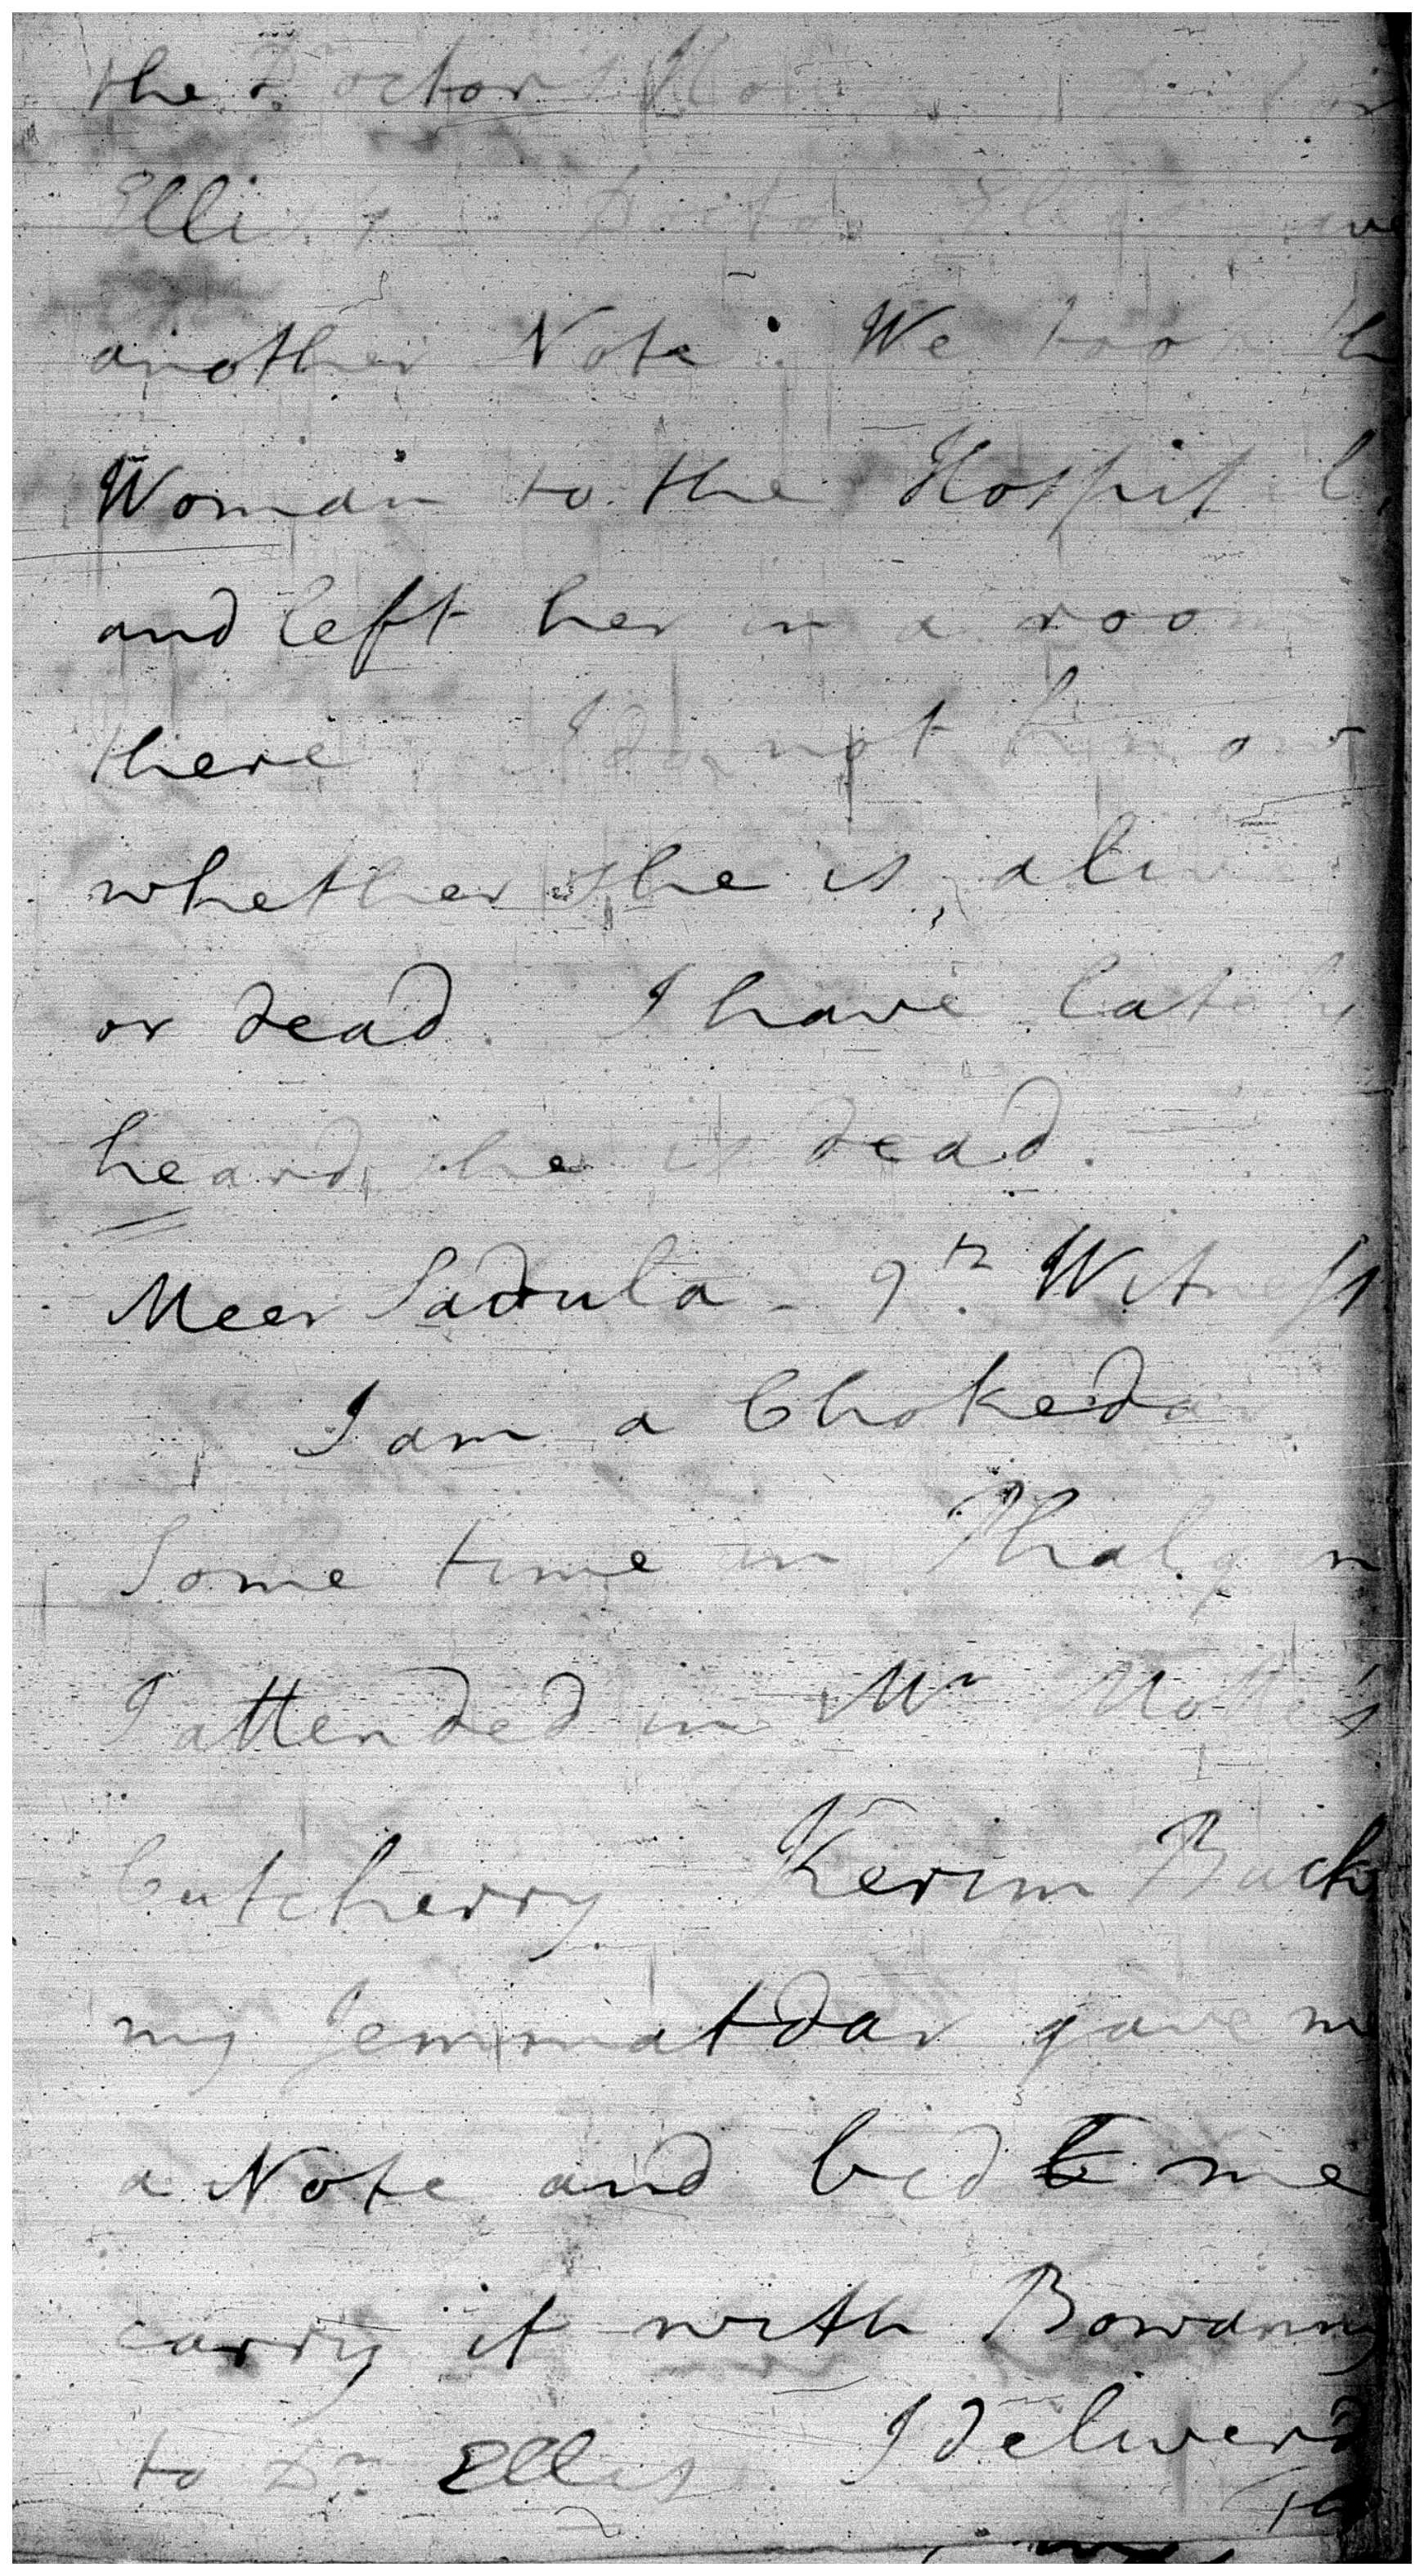 the Doctors
Ellis Doctor Ellis gave
another Note. We took the
Woman to the Hospital,
and left her in a room
there I do not know
whether she is alive
or dead. I have lately
heard she is dead.
Meer Sadula - 9th. Witness
I am a Chokedar
Some time in Phalgun
I attended in Mr Motte's
Cutcherry Kerim Buck
my Jemmatdar gave me
a Note and bid me
carry it with Bowanny
to Dr. Ellis. I deliver'd
The